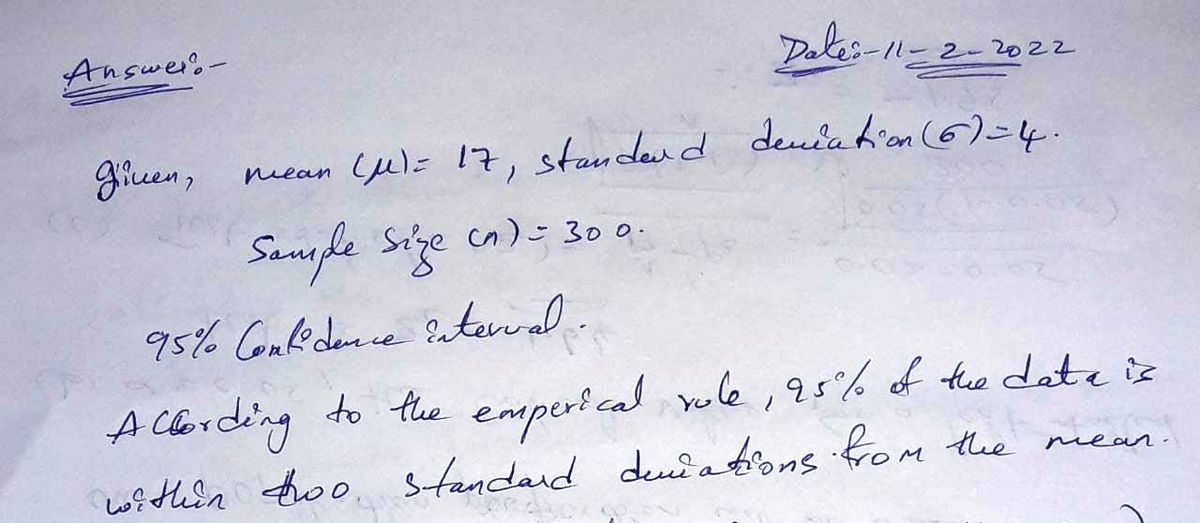 Answer:- Date:-11-2-2022
given, mean (μ)= 17, standard deviation(σ)=4.
Sample size (n)=300.
95% Confidence interval.
According to the emperical rule, 95% of the data is
within two standard deviations from the mean.